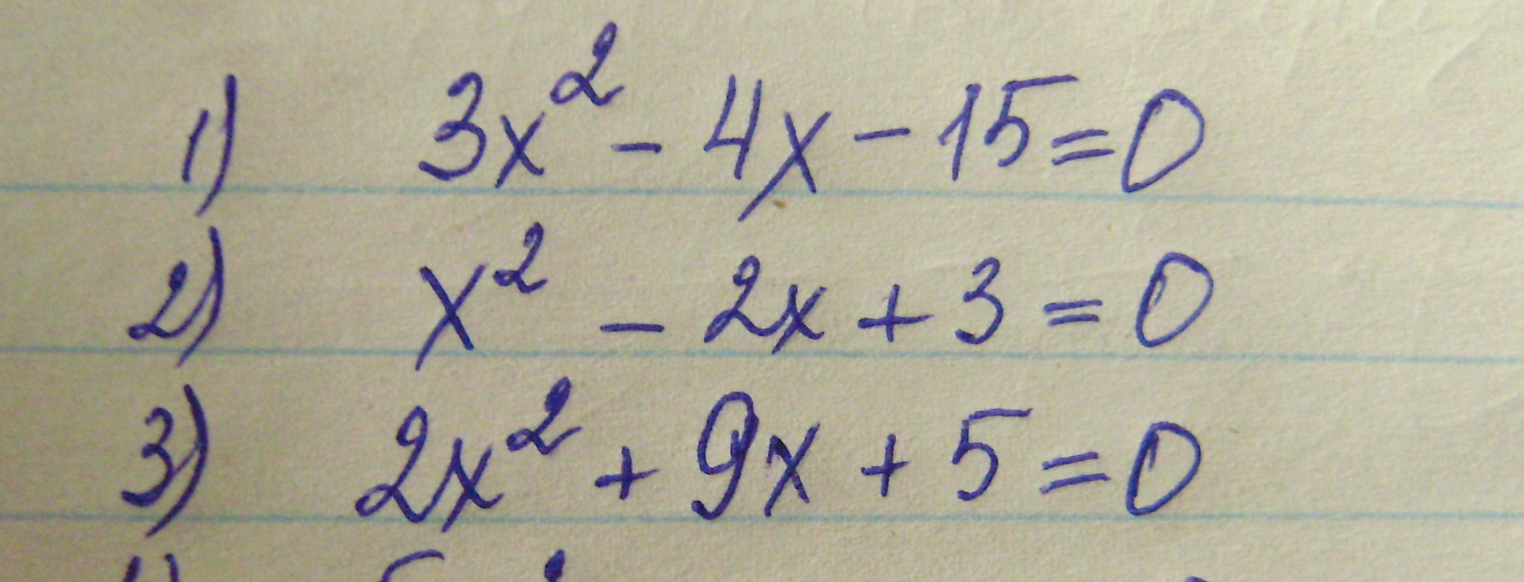 1) 3x² - 4x - 15 = 0
2) x² - 2x + 3 = 0
3) 2x² + 9x + 5 = 0